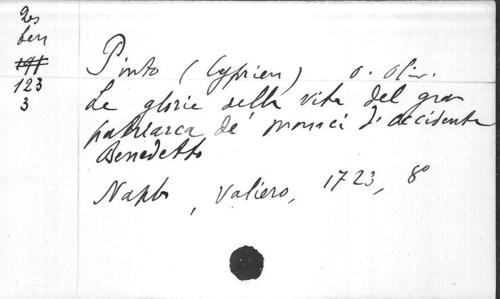 Res
ben
191
123
3
Pinto (Cyprien) o. Oliv.
Le glorie della vita del gran
patriarca de' monaci d'occidente
Benedetto
Naples, Valiero, 1723, 8º